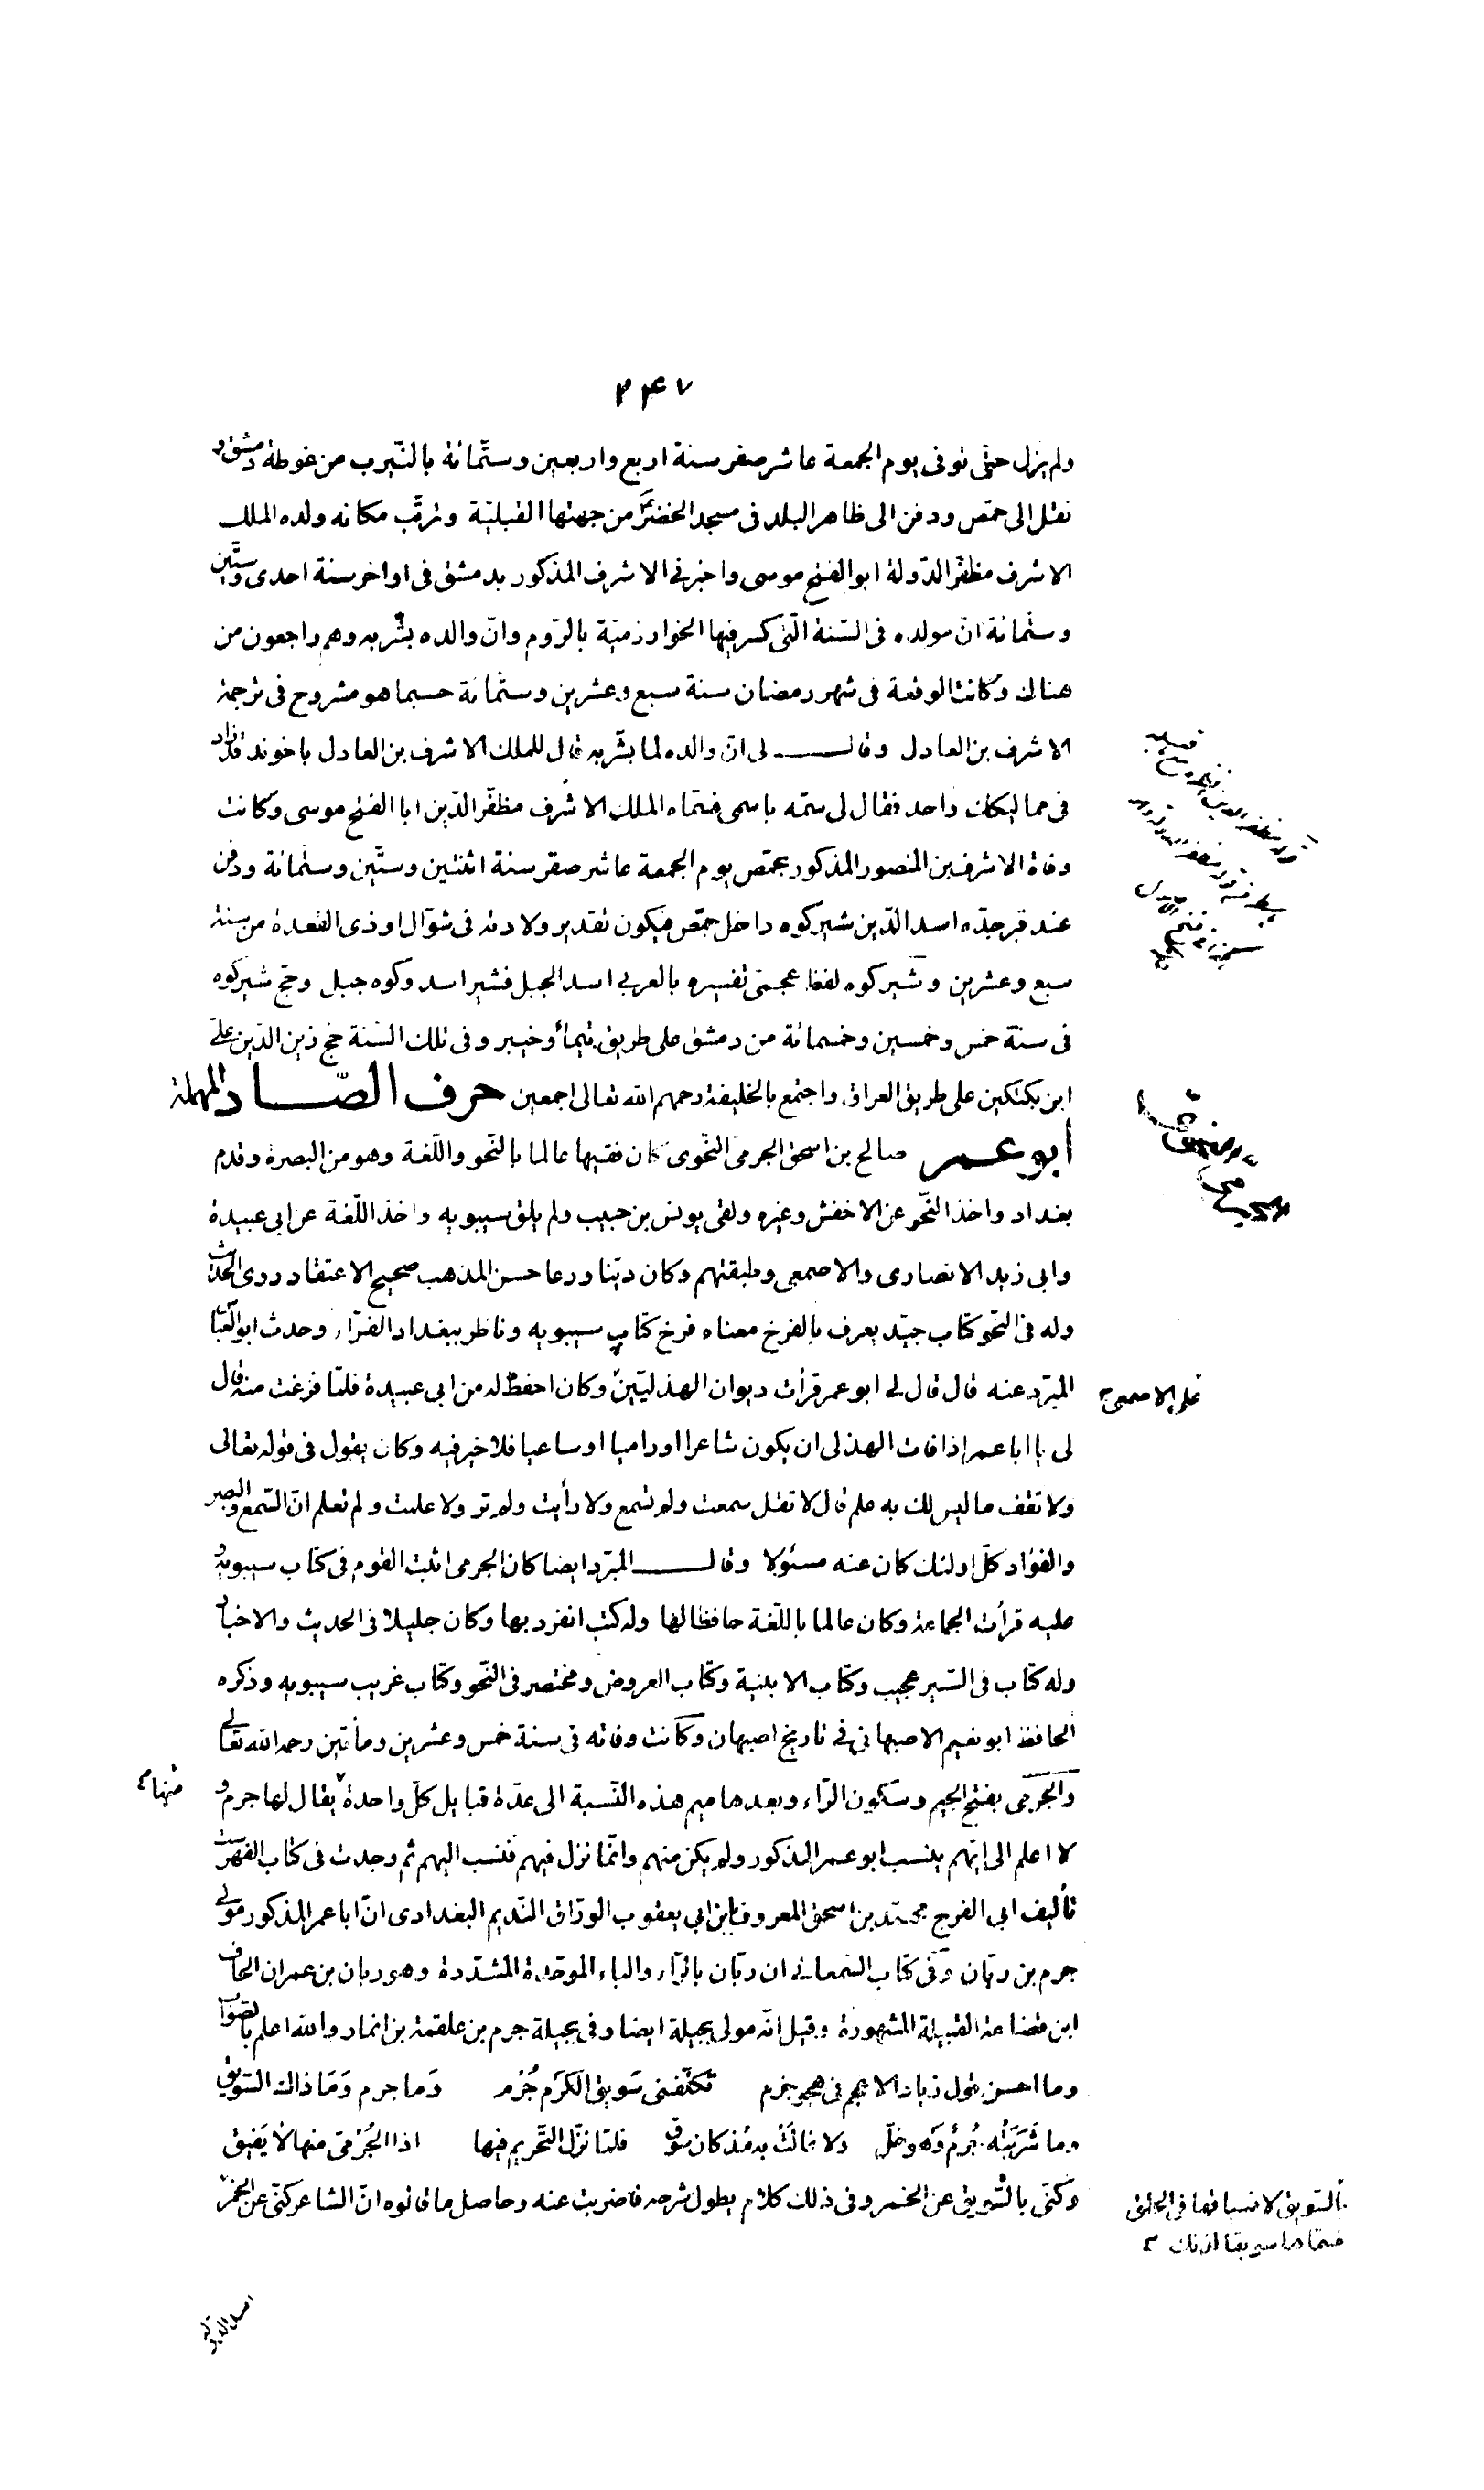 ۲۴۷
ولم يزل حتى توفى يوم الجمعة عاشر صفر سنة اربع واربعين وستمائة بالنيرب من غوطة دمشق و
نقل الى حمص ودفن الى ظاهر البلد فى مسجد الخضر من جهتها القبلية وترتب مكانه ولده الملك
الاشرف مظفر الدولة ابو الفتح موسى واخبرنى الاشرف المذكور بدمشق فى اواخر سنة احدى وستين
وستمائة ان مولده فى السنة التى كسر فيها الخوارزمية بالروم وان والده بشر به وهم راجعون من
هناك وكانت الوقعة فى شهر رمضان سنة سبع وعشرين وستمائة حسبما هو مشروح فى ترجمة
الاشرف بن العادل وقال لى ان والده لما بشر به قال للملك الاشرف بن العادل ياخوند قد زاد
فى مماليكك واحد فقال لى سمه باسمى فسماه الملك الاشرف مظفر الدين ابا الفتح موسى وكانت
وفاة الاشرف بن المنصور المذكور بحمص يوم الجمعة عاشر صفر سنة اثنتين وستين وستمائة ودفن
عند قبر جده اسد الدين شيركوه داخل حمص فيكون تقدير ولادته فى شوال او ذى القعدة من سنة
سبع وعشرين وشيركوه لفظ عجمى تفسيره بالعربى اسد الجبل فشير اسد وكوه جبل وحج شيركوه
فى سنة خمس وخمسين وخمسمائة من دمشق على طريق تيماء وخيبر وفى تلك السنة حج زين الدين على
ابن بكتكين على طريق العراق واجتمع بالخليفة رحمهم الله تعالى اجمعين حرف الصّاد المهملة
أبو عمر صالح بن اسحق الجرمى النحوى كان فقيها عالما بالنحو واللغة وهو من البصرة وقدم
بغداد واخذ النحو عن الاخفش وغيره ولقى يونس بن حبيب ولم يلق سيبويه واخذ اللغة عن ابى عبيدة
وابى زيد الانصارى والاصمعى وطبقتهم وكان دينا ورعا حسن المذهب صحيح الاعتقاد روى الحديث
وله فى النحو كتاب جيد يعرف بالفرخ معناه فرخ كتاب سيبويه وناظر ببغداد الفراء وحدث ابو العباس
المبرد عنه قال قال لى ابو عمر قرأت ديوان الهذليين وكان احفظ له من ابى عبيدة فلما فرغت منه قال
على الاصمعى
لى يا ابا عمر اذا فات الهذلى ان يكون شاعرا او راميا او ساعيا فلا خير فيه وكان يقول فى قوله تعالى
ولا تقف ما ليس لك به علم قال لا تقل سمعت ولم تسمع ولا رأيت ولم تر ولا علمت ولم تعلم ان السمع والبصر
والفؤاد كل اولئك كان عنه مسئولا وقال المبرد ايضا كان الجرمى اثبت القوم فى كتاب سيبويه و
عليه قرأت الجماعة وكان عالما باللغة حافظا لها وله كتب انفرد بها وكان جليلا فى الحديث والاخبار
وله كتاب فى السير عجيب وكتاب الابنية وكتاب العروض ومختصر فى النحو وكتاب غريب سيبويه وذكره
الحافظ ابو نعيم الاصبهانى فى تاريخ اصبهان وكانت وفاته فى سنة خمس وعشرين ومأتين رحمه الله تعالى
والجرمى بفتح الجيم وسكون الراء وبعدها ميم هذه النسبة الى عدة قبايل كل واحدة يقال لها جرم و
منها
لا اعلم الى ايهم ينسب ابو عمر المذكور ولم يكن منهم وانما نزل فيهم فنسب اليهم ثم وجدت فى كتاب الفهرست
تأليف ابى الفرج محمد بن اسحق المعروف بابن ابى يعقوب الوراق النديم البغدادى ان ابا عمر المذكور مولى
جرم بن ربان وفى كتاب السمعانى ان ربان بالراء والباء الموحدة المشددة وهو ربان بن عمران الحاف
ابن قضاعة القبيلة المشهورة وقيل انه مولى بجيلة ايضا وفى بجيلة جرم بن علقمة بن انمار والله اعلم بالصواب
وما احسن قول زياد الاعجم فى هجو جرم تكلفنى سويق الكرم جرم وما جرم وما ذاك السويق
وما شربته جرم وهو حل ولا غالت به مذ كان سوق فلما نزل التحريم فيها اذا الجرمى منها لا يفيق
وكنى بالسويق عن الخمر وفى ذلك كلام يطول شرحه فاضربت عنه وحاصل ما قالوه ان الشاعر كنى عن الخمر
بالسويق لانسياقها فى الحلق
فسماها سويقا لذلك